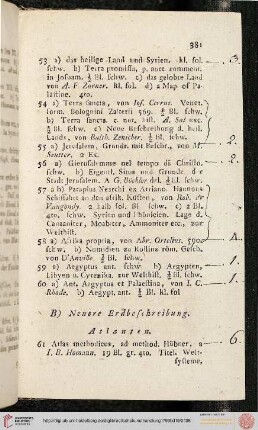 381
53 a) das heilige Land und Syrien. kl. fol. 3.
schw. b) Terra promissa, p. nott comment.
in Josuam. ½ Bl. schw. c) das gelobte Land
von A. F. Zürner. kl. fol. d) a Map of Pa-
lästine. 4to.
54 a) Terra sancta, von Jof. Cernue. Venet.
form. Bolognini Zalterii 569. ½ Bl. schw.
b) Terra sancta c. not. hist. A. Sac exc.
½ Bl. schw. c) Neue Beschreibung d. heil.
Lands, von Balth. Zenicher. ½ Bl. schw. 2.
55 a) Jerusalem, Grundr. mit Beschr., von M.
Seutter, 2 Ex. 2.
56 a) Gierusalemme nel tempo di Christo.
schw. b) Eigentl. Situs und Grundr. der
Stadt Jerusalem. A. G. del. ½ Bl. schw.
57 a b) Paraplus Nearchi ex Arriano. Hannons
Schiffahrt an den afrik. Küsten, von Rob. de
Vaugondy. 2 halb fol. Bl. schw. c) 2 Bl.
4to. schw. Syrien und Phönicien. Lage d.
Cananiter, Moabiter, Ammoniter etc. zur
Welthist.
58 a) Afrika propria, von Abr. Ortelius. 590.
schw. b) Numidien zu Rollins röm. Gesch.
von D'Anville. ½ Bl. schw.
59 a) Aegyptus ant. schw. b) Aegypten,
Libyen u. Cyrenaika. zur Welthist. ½ Bl. schw. 1.
60 a) Ant. Aegyptus et Palaestina, von I. C.
Rhode. b) Aegypt. ant. ½ Bl. kl. fol
B) Neuere Erdbeschreibung.
Atlanten.
61 Atlas methodicus, ad method. Hübner, a 6
I. B. Homann, 19 Bl. gr. 4to. Titel. Welt-
systeme,